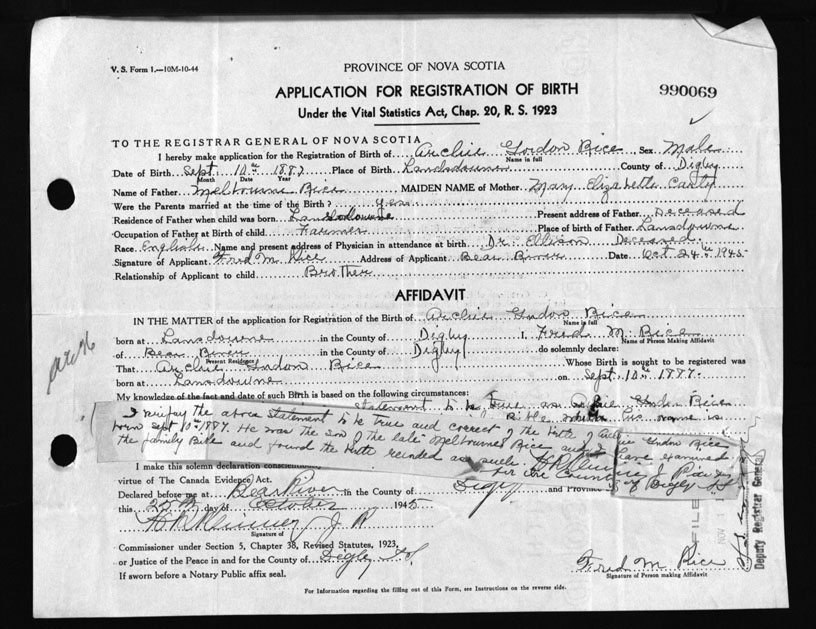 V. S. Form 1.—10M-10-44
PROVINCE OF NOVA SCOTIA
APPLICATION FOR REGISTRATION OF BIRTH
990069
Under the Vital Statistics Act, Chap. 20, R. S. 1923
TO THE REGISTRAR GENERAL OF NOVA SCOTIA
I hereby make application for the Registration of Birth of Archie Gordon Rice, Sex Male
Name in full
Date of Birth Sept 10th 1887 Place of Birth Lansdowne County of Digby
Month Date Year
Name of Father Melbourne Rice MAIDEN NAME of Mother Mary Elizabeth
Were the Parents married at the time of the Birth? yes
Residence of Father when child was born Lansdowne Present address of Father Deceased
Occupation of Father at Birth of child Farmer Place of birth of Father Lansdowne
Race English Name and present address of Physician in attendance at birth Dr. Ellison Deceased
Signature of Applicant Fred M Rice Address of Applicant Bear River Date Oct 24th 1945
Relationship of Applicant to child Brother
AFFIDAVIT
IN THE MATTER of the application for Registration of the Birth of Archie Gordon Rice
Name in full
born at Lansdowne in the County of Digby I, Fred M. Rice
Name of Person Making Affidavit
of Bear River in the County of Digby do solemnly declare:
Present Residence
That Archie Gordon Rice Whose Birth is sought to be registered was
born at Lansdowne on Sept 10th 1887.
My knowledge of the fact and date of such Birth is based on the following circumstances:
statement to be true as Archie Gordon Rice
Bible name is
I the above statement to be true and correct of the birth of Archie Gordon Rice
born Sept 10th 1887. He was the son of the late Melbourne Rice and I have examined
the family Bible and found the birth recorded as such.
for the County of Digby
I make this solemn declaration conscientiously
virtue of The Canada Evidence Act.
Declared before me at Bear River in the County of Digby and Province
this 25th day of October 1945
Signature of
Commissioner under Section 5, Chapter 38, Revised Statutes, 1923,
or Justice of the Peace in and for the County of Digby
If sworn before a Notary Public affix seal.
Fred M Rice
Signature of Person making Affidavit
FILED
NOV
Deputy Registrar General
For Information regarding the filling out of this Form, see Instructions on the reverse side.